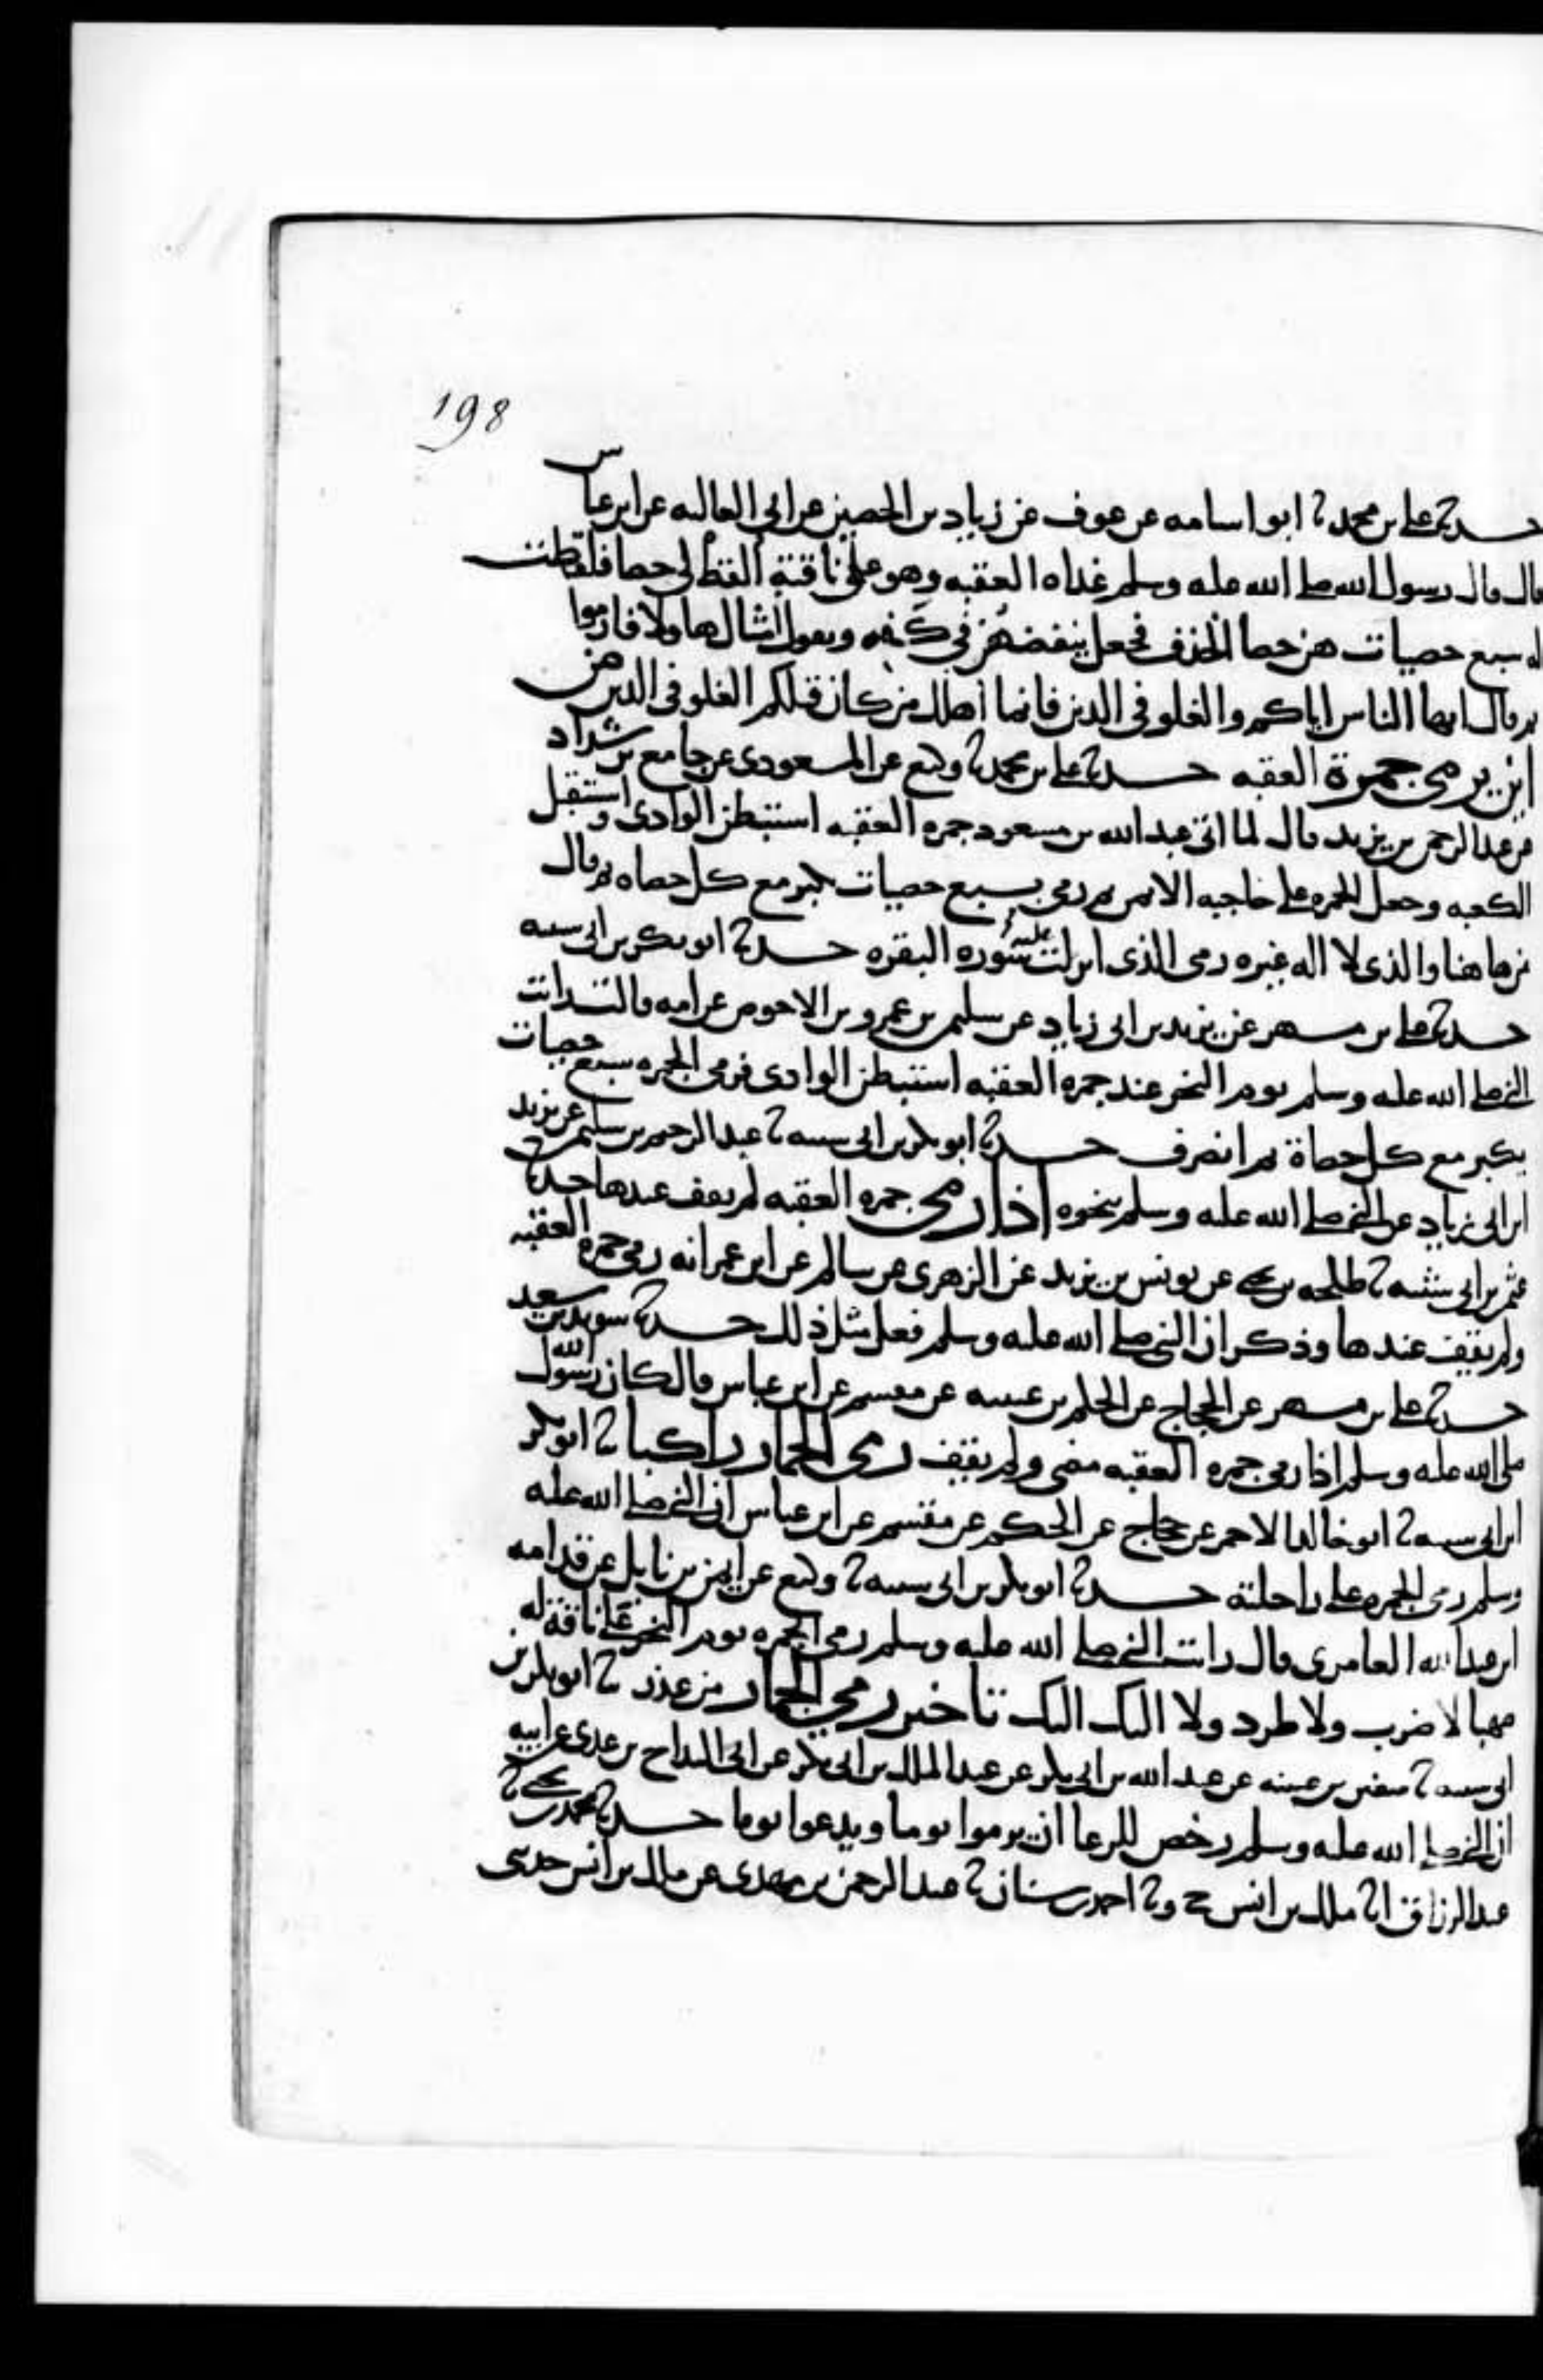 198
حدثنا علي بن محمد ثنا ابو اسامه عن عوف عن زياد بن الحصين عن ابي العاليه عن ابن عباس
قال قال رسول الله صلى الله عليه وسلم غداه العقبه وهو على ناقته القط لي حصا فلقطت
له سبع حصيات هن حصا الخذف فجعل ينفضهن في كفه ويقول امثال هاولا فارموا
ثم قال ايها الناس اياكم والغلو في الدين فانما اهلك من كان قبلكم الغلو في الدين من
اين يرمى جمرة العقبه حدثنا علي بن محمد ثنا وكيع عن المسعودي عن جامع بن شداد
عن عبد الرحمن بن يزيد قال لما اتى عبد الله بن مسعود جمره العقبه استبطن الوادي واستقبل
الكعبه وجعل الجمره على حاجبه الايمن ثم رمى بسبع حصيات يكبر مع كل حصاه ثم قال
من هاهنا والذي لا اله غيره رمى الذي انزلت عليه سوره البقره حدثنا ابو بكر بن ابي شيبه
حدثنا علي بن مسهر عن يزيد بن ابي زياد عن سليمن بن عمرو بن الاحوص عن امه قالت رايت
النبي صلى الله عليه وسلم يوم النحر عند جمره العقبه استبطن الوادي فرمى الجمره بسبع حصيات
يكبر مع كل حصاة ثم انصرف حدثنا ابو بكر بن ابي شيبه ثنا عبد الرحيم بن سليمن عن يزيد
ابن ابي زياد عن النبي صلى الله عليه وسلم بنحوه اذا رمى جمره العقبه لم يقف عندها حدثنا
عثمن بن ابي شيبه ثنا طلحه بن يحيى عن يونس بن يزيد عن الزهري عن سالم عن ابن عمر انه رمى جمره العقبه
ولم يقف عندها وذكر ان النبي صلى الله عليه وسلم فعل مثل ذلك حدثنا سويد بن سعيد
حدثنا علي بن مسهر عن الحجاج عن الحكم بن عتيبه عن مقسم عن ابن عباس قال كان رسول الله
صلى الله عليه وسلم اذا رمى جمره العقبه مضى ولم يقف رمى الجمار راكبا ثنا ابو بكر
ابن ابي شيبه ثنا ابو خالد الاحمر عن حجاج عن الحكم عن مقسم عن ابن عباس ان النبي صلى الله عليه
وسلم رمى الجمره على راحلته حدثنا ابو بكر بن ابي شيبه ثنا وكيع عن ايمن بن نابل عن قدامه
ابن عبد الله العامري قال رايت النبي صلى الله عليه وسلم رمى الجمره يوم النحر على ناقة له
صهبا لا ضرب ولا طرد ولا اليك اليك تاخير رمي الجمار من عذر ثنا ابو بكر بن
ابي شيبه ثنا سفين بن عيينه عن عبد الله بن ابي بكر عن عبد الملك بن ابي بكر عن ابي البداح بن عدي عن ابيه
ان النبي صلى الله عليه وسلم رخص للرعا ان يرموا يوما ويدعوا يوما حدثنا محمد بن يحيى ثنا
عبد الرزاق انا ملك بن انس ح وثنا احمد بن سنان ثنا عبد الرحمن بن مهدي عن مالك بن انس حدثني